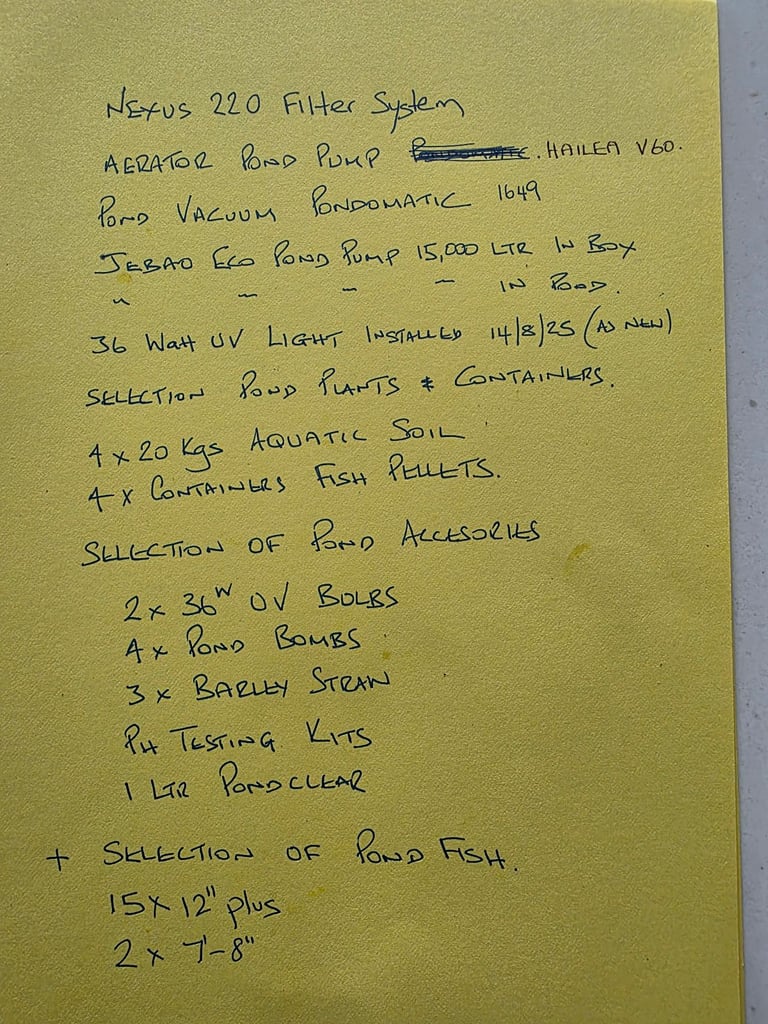 NEXUS 220 Filter System
AERATOR POND PUMP . HAILEA V60.
POND VACUUM PONDOMATIC 1649
JEBAO ECO POND PUMP 15,000 LTR IN BOX
" " " " IN POND.
36 Watt UV LIGHT INSTALLED 14/8/25 (AS NEW)
SELECTION POND PLANTS & CONTAINERS.
4 x 20 Kgs AQUATIC SOIL
4 x CONTAINERS FISH PELLETS.
SELECTION OF POND ACCESORIES
2 x 36W UV BULBS
4 x POND BOMBS
3 x BARLEY STRAW
PH TESTING KITS
1 LTR PONDCLEAR
+ SELECTION OF POND FISH.
15 x 12" plus
2 x 7'-8"